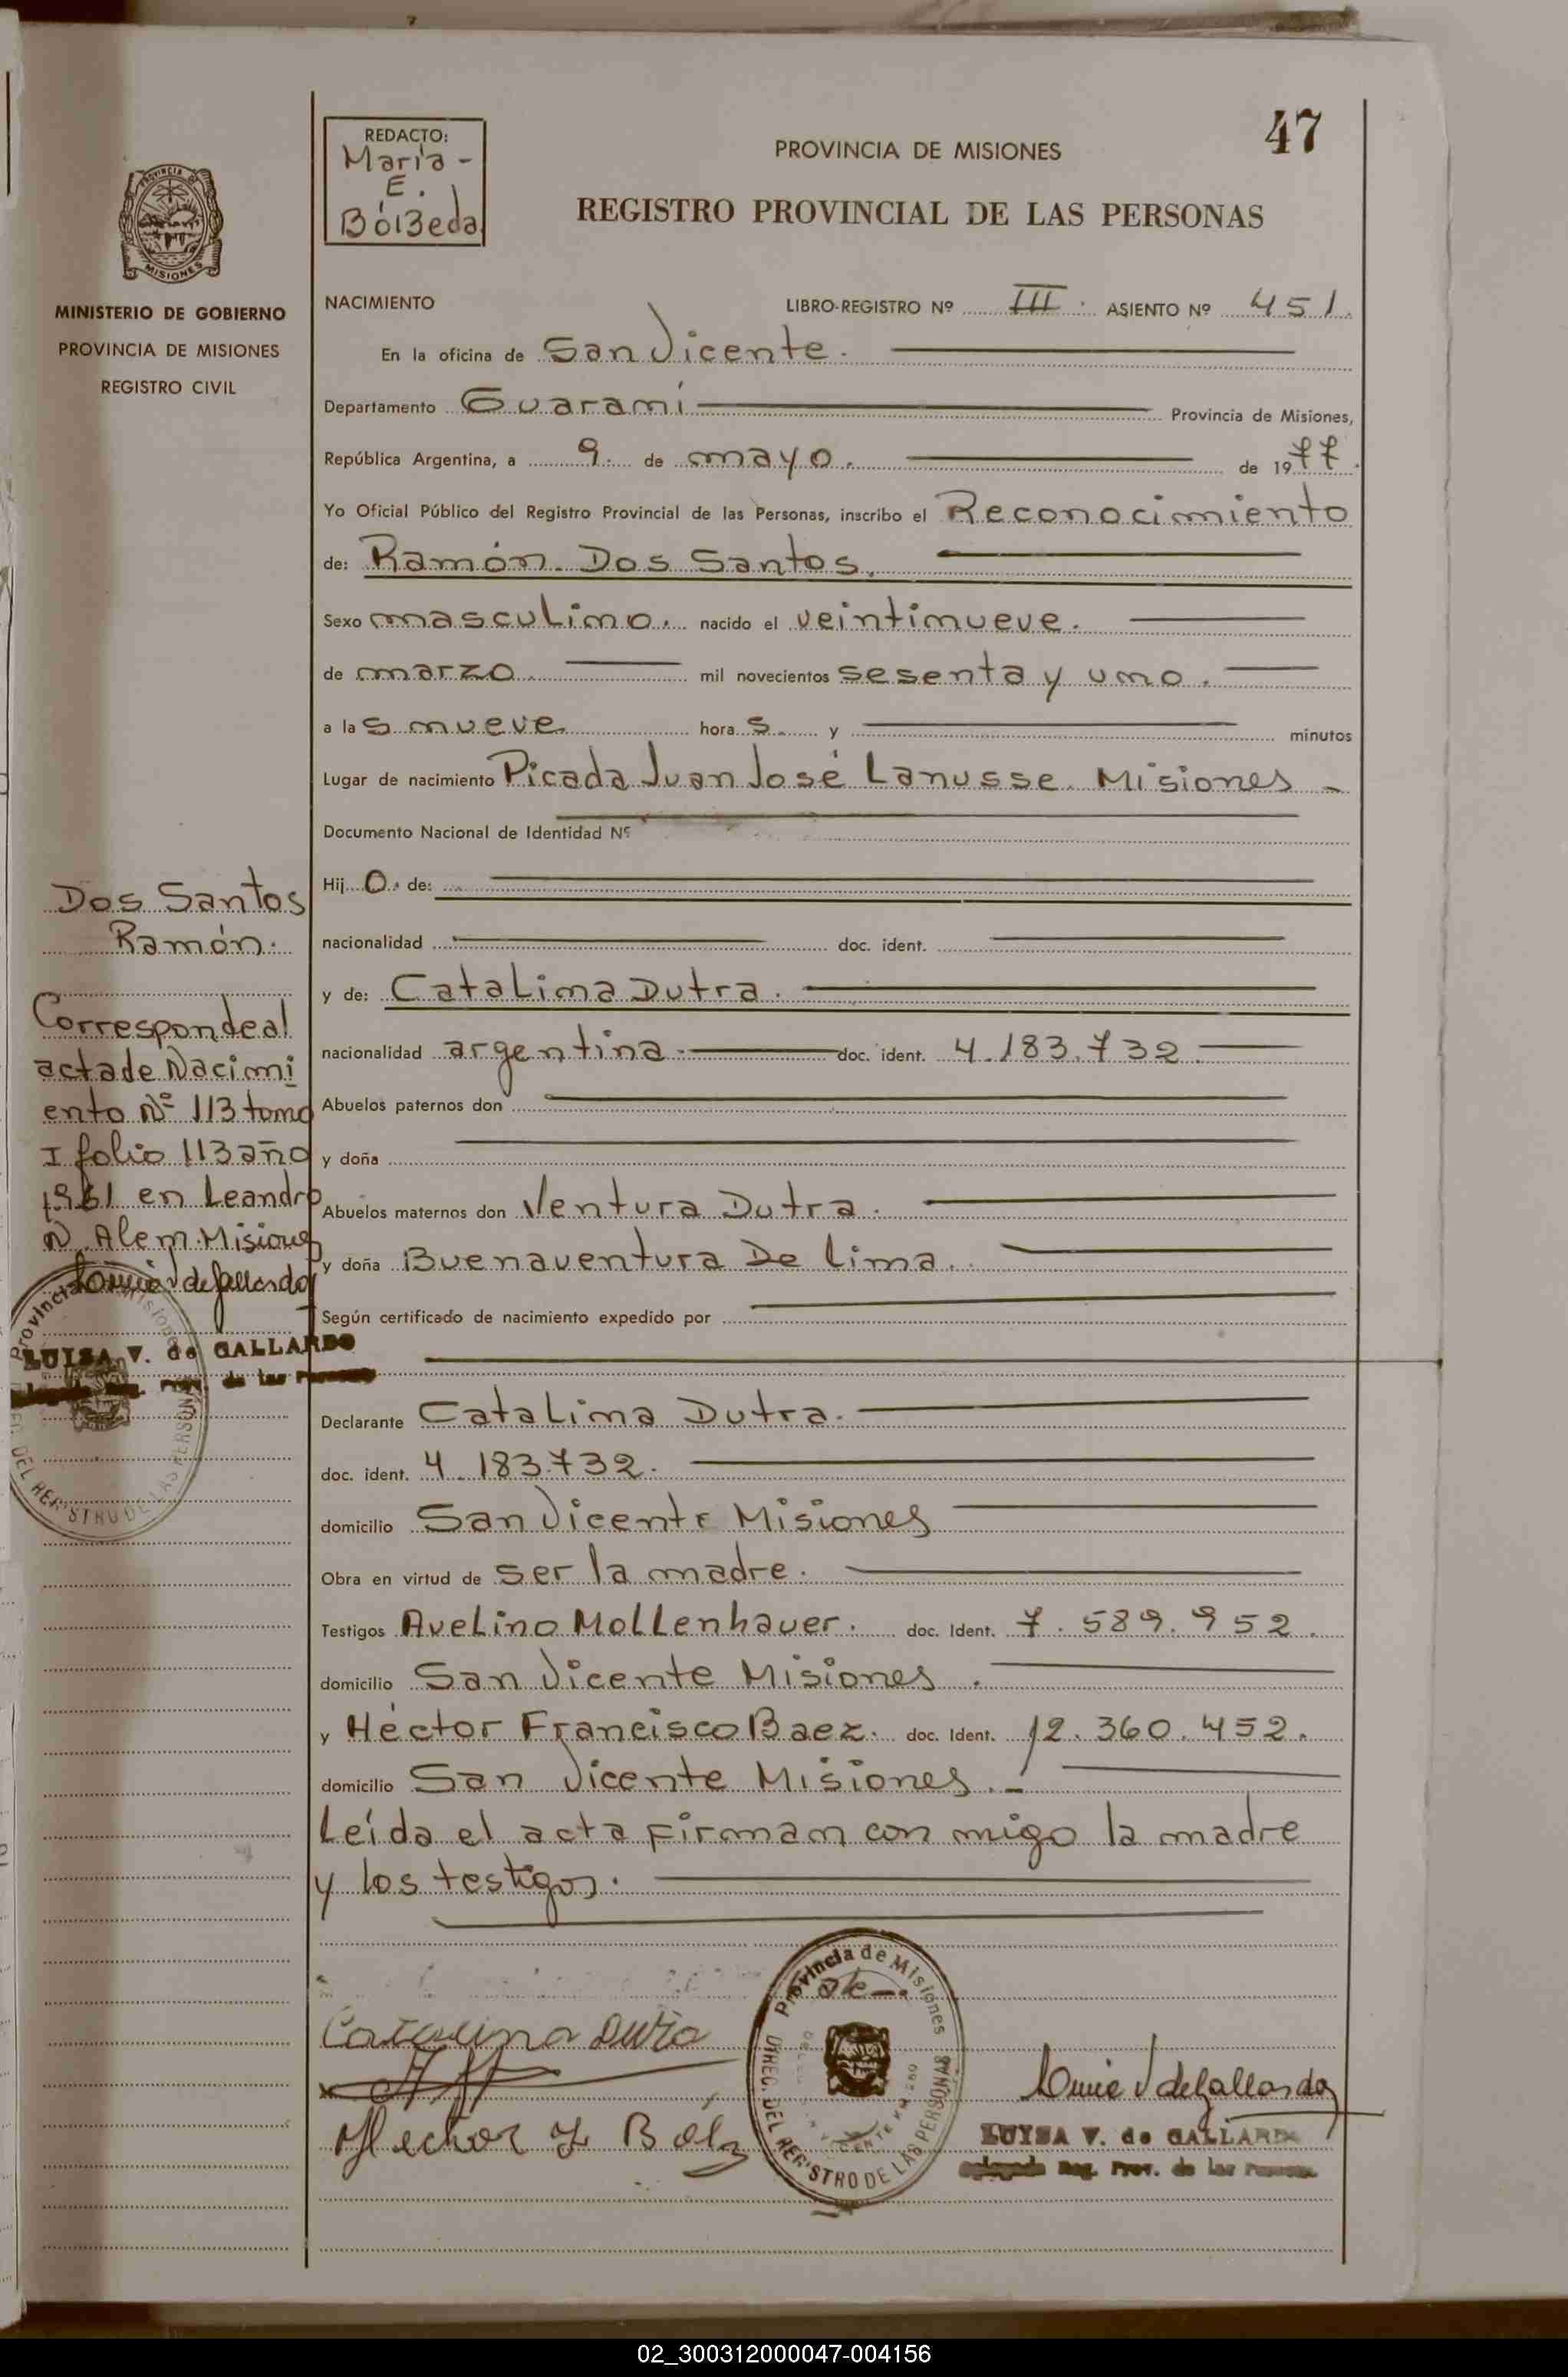 47
REDACTO:
María -
E.
BóiBeda
PROVINCIA DE MISIONES
REGISTRO PROVINCIAL DE LAS PERSONAS
PROVINCIA DE
MISIONES
MINISTERIO DE GOBIERNO
PROVINCIA DE MISIONES
REGISTRO CIVIL
NACIMIENTO LIBRO-REGISTRO Nº III. ASIENTO Nº 451.
En la oficina de San Vicente.
Departamento Guaraní Provincia de Misiones,
República Argentina, a 9. de mayo. de 1977.
Yo Oficial Público del Registro Provincial de las Personas, inscribo el Reconocimiento
de: Ramón. Dos Santos.
Sexo masculino. nacido el veintinueve.
de marzo. mil novecientos sesenta y uno.
a las nueve. horas. y minutos
Lugar de nacimiento Picada Juan José Lanusse. Misiones -
Documento Nacional de Identidad Nº
Hijo. de:
nacionalidad doc. ident.
y de: Catalina Dutra.
nacionalidad argentina. doc. ident. 4.183.732
Abuelos paternos don
y doña
Abuelos maternos don Ventura Dutra.
y doña Buenaventura De Lima.
Según certificado de nacimiento expedido por
Declarante Catalina Dutra.
doc. ident. 4.183.732.
domicilio San Vicente Misiones
Obra en virtud de ser la madre.
Testigos Avelino Mollenhauer. doc. Ident. 7.589.952.
domicilio San Vicente Misiones.
y Héctor Francisco Baez. doc. Ident. 12.360.452.
domicilio San Vicente Misiones. -
Leída el acta firman con migo la madre
y los testigos.
Dos Santos
Ramón.
Corresponde al
acta de Nacimi
ento Nº 113 tomo
I folio 113 año
1961 en Leandro
N. Alem. Misiones
LUISA V. de GALLARDO
Reg. Prov. de las Personas
Provincia de Misiones
DEL REGISTRO DE LAS PERSONAS
Catalina Dutra
Hector F Báez
Provincia de Misiones
DIREC. DEL REGISTRO DE LAS PERSONAS
Luisa V de Gallardo
LUISA V. de GALLARDO
Delegada Reg. Prov. de las Personas
02_300312000047-004156